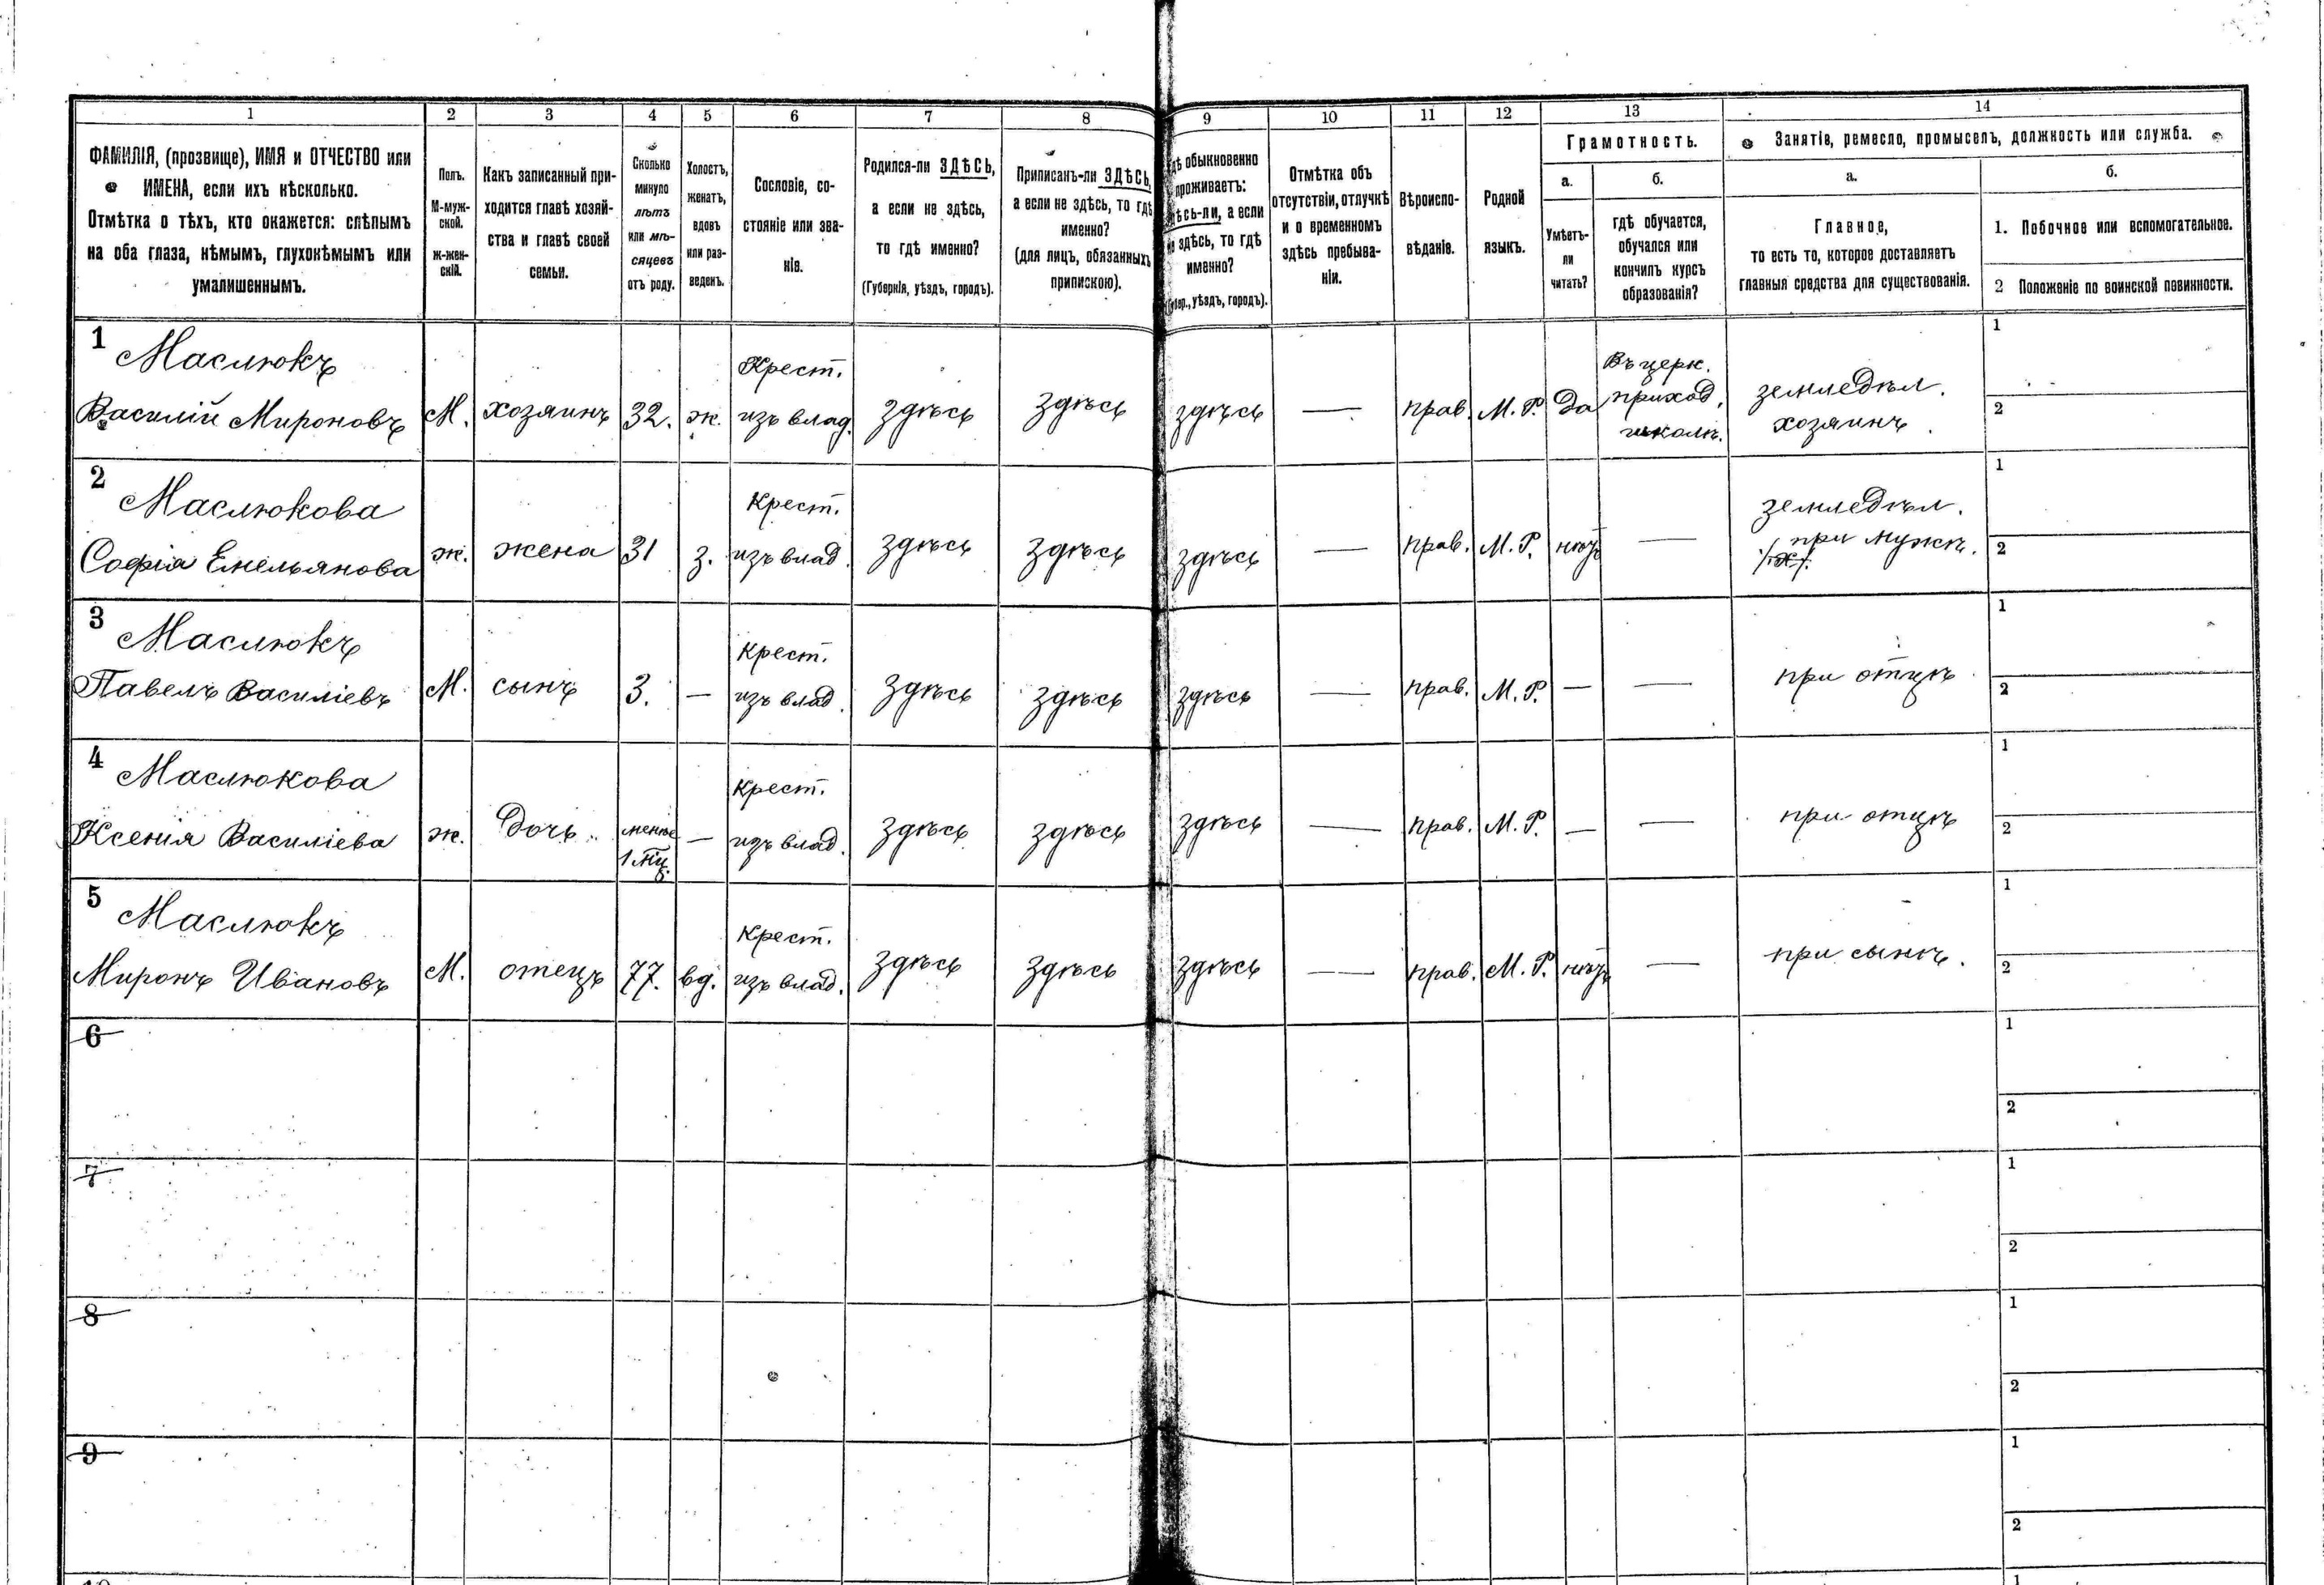 1 2 3 4 5 6 7 8 9 10 11 12 13 14
ФАМИЛІЯ, (прозвище), ИМЯ и ОТЧЕСТВО или
ИМЕНА, если ихъ нѣсколько.
Отмѣтка о тѣхъ, кто окажется: слѣпымъ
на оба глаза, нѣмымъ, глухонѣмымъ или
умалишеннымъ.
Полъ.
М-муж-
ской.
ж-жен-
скій.
Какъ записанный при-
ходится главѣ хозяй-
ства и главѣ своей
семьи.
Сколько
минуло
лѣтъ
или мѣ-
сяцевъ
отъ роду.
Холостъ,
женатъ,
вдовъ
или раз-
веденъ.
Сословіе, со-
стояніе или зва-
ніе.
Родился-ли ЗДѢСЬ,
а если не здѣсь,
то гдѣ именно?
(Губернія, уѣздъ, городъ).
Приписанъ-ли ЗДѢСЬ,
а если не здѣсь, то гдѣ
именно?
(для лицъ, обязанныхъ
припискою).
обыкновенно
проживаетъ:
а если
здѣсь, то гдѣ
именно?
уѣздъ, городъ).
Отмѣтка объ
отсутствіи, отлучкѣ
и о временномъ
здѣсь пребыва-
ніи.
Вѣроиспо-
вѣданіе.
Родной
языкъ.
Грамотность.
а.
Умѣетъ-
ли
читать?
б.
гдѣ обучается,
обучался или
кончилъ курсъ
образованія?
Занятіе, ремесло, промыселъ, должность или служба.
а.
Главное,
то есть то, которое доставляетъ
главныя средства для существованія.
б.
1. Побочное или вспомогательное.
2 Положеніе по воинской повинности.
1 Маслюкъ
Василій Мироновъ
М.
хозяинъ
32.
ж.
Крест.
изъ влад.
здѣсь
здѣсь
здѣсь
—
прав.
М. Р.
да
Въ церк.
приход.
школѣ.
земледѣл.
хозяинъ.
1
2
2 Маслюкова
Софія Емельянова
ж.
жена
31
з.
Крест.
изъ влад.
здѣсь
здѣсь
здѣсь
—
прав.
М. Р.
нѣтъ
—
земледѣл.
при мужѣ.
1
2
3 Маслюкъ
Павелъ Василіевъ
М.
сынъ
3.
—
Крест.
изъ влад.
здѣсь
здѣсь
здѣсь
—
прав.
М. Р.
—
—
при отцѣ
1
2
4 Маслюкова
Ксенія Василіева
ж.
дочь
менѣе
1 мц.
—
Крест.
изъ влад.
здѣсь
здѣсь
здѣсь
—
прав.
М. Р.
—
—
при отцѣ
1
2
5 Маслюкъ
Миронъ Ивановъ
М.
отецъ
77.
вд.
Крест.
изъ влад.
здѣсь
здѣсь
здѣсь
—
прав.
М. Р.
нѣтъ
—
при сынѣ.
1
2
6
1
2
7
1
2
8
1
2
9
1
2
1